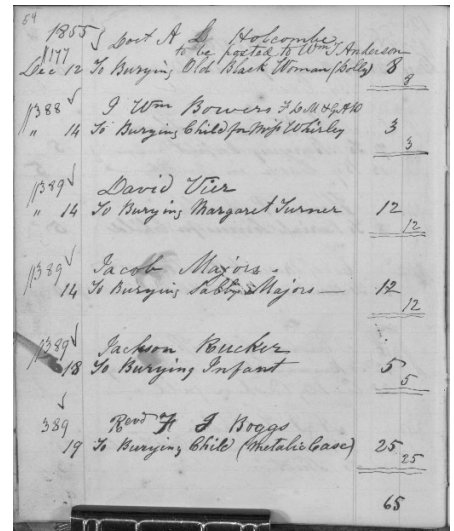 54
1855 Doct A L Holcombe
to be posted to Wm T Anderson
1177
Dec 12 To Burying Old Black Woman (Dolly) 8
8
1388 J Wm Bowers
" 14 To Burying Child for Miss Whirley 3
3
1389 David Vier
" 14 To Burying Margaret Turner 12
12
1389 Jacob Majors
14 To Burying Majors — 12
12
1389 Jackson Rucker
18 To Burying Infant 5
5
389 Revd F J Boggs
19 To Burying Child (Metalic Case) 25
25
65